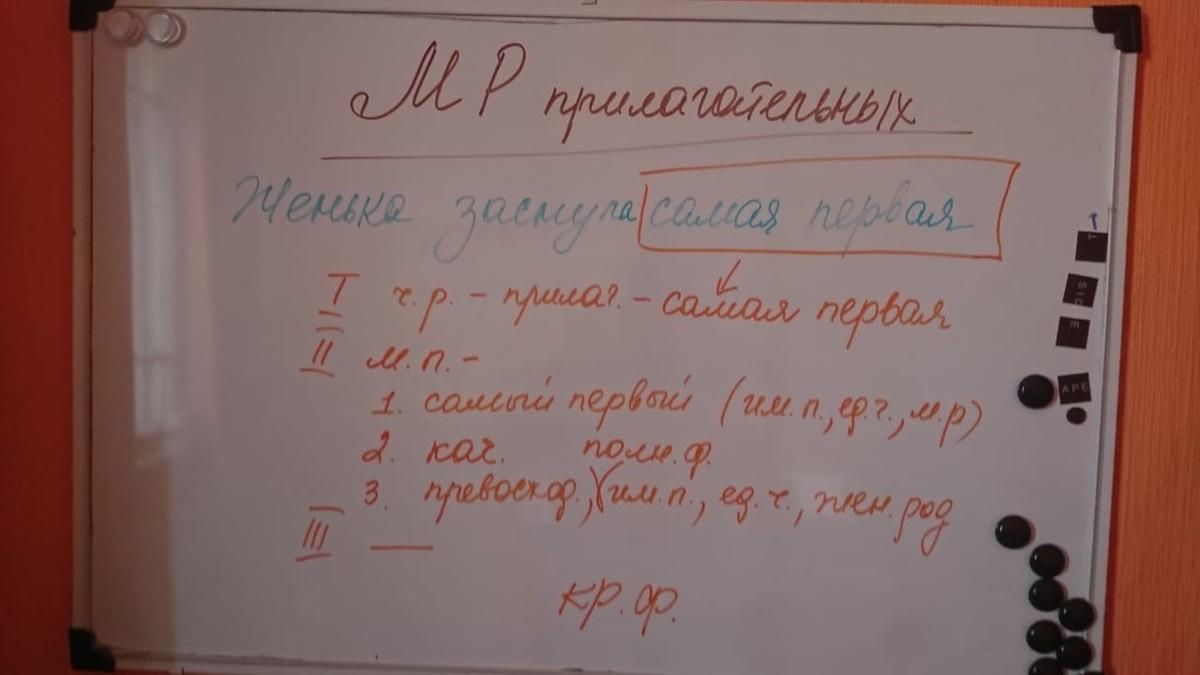 МР прилагательных
Женька заснула самая первая
I ч.р. - прилаг. - самая первая
II м.п. -
1. самый первый (им.п., ед.ч., м.р)
2. кач. полн.ф.
3. превосход., (им.п., ед.ч., жен.род
III —
кр.ф.
APE